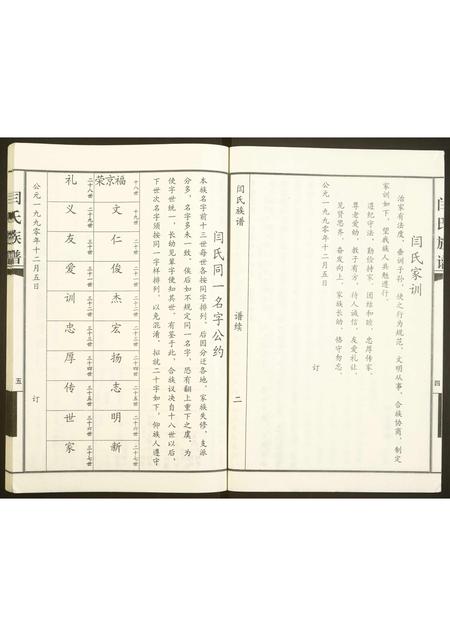 闫氏族谱
四
闫氏家训
治家有法度、垂训子孙，使之行为规范，文明从事，合族协商，制定
家训如下，望我族人共勉遵行。
遵纪守法、勤俭持家、团结和睦、忠厚传家、
尊老爱幼、教子有方、待人诚信、友爱礼让、
见贤思齐、奋发向上、家族长幼、恪守勿忘。
公元一九九零年十二月五日 订
闫氏族谱 谱续 二
闫氏同一名字公约
本族名字前十三世每世各按同字排列，后因分迁各地，家族失修，支派
分多，名字多未一致，俟后如不规定同一名字，恐有翻上重下之虞，为
使字世统一，长幼见辈字便知其世，有鉴于此，合族议决自十八世以后，
下世次名字须按同一字样排列，以免混淆，拟就二十字如下，仰族人遵守
十八世 十九世 二十世 二十一世 二十二世 二十三世 二十四世 二十五世 二十六世 二十七世
福京荣 文 仁 俊 杰 宏 扬 志 明 新
二十八世 二十九世 三十世 三十一世 三十二世 三十三世 三十四世 三十五世 三十六世 三十七世
礼 义 友 爱 训 忠 厚 传 世 家
公元一九九零年十二月五日 订
闫氏族谱
五